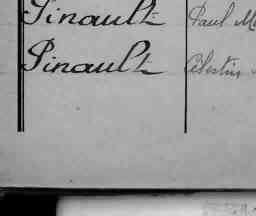 Pinault Paul
Pinault Célestin